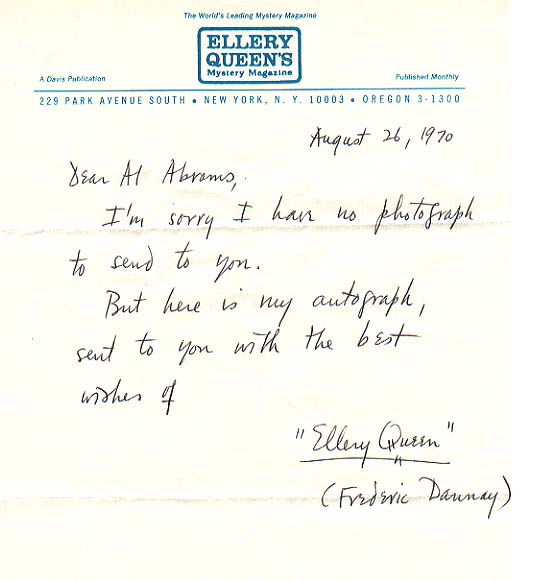 The World's Leading Mystery Magazine
ELLERY
QUEEN'S
Mystery Magazine
A Davis Publication
Published Monthly
229 PARK AVENUE SOUTH • NEW YORK, N. Y. 10003 • OREGON 3-1300
August 26, 1970
Dear Al Abrams,
I'm sorry I have no photograph
to send to you.
But here is my autograph,
sent to you with the best
wishes of
"Ellery Queen"
(Frederic Dannay)